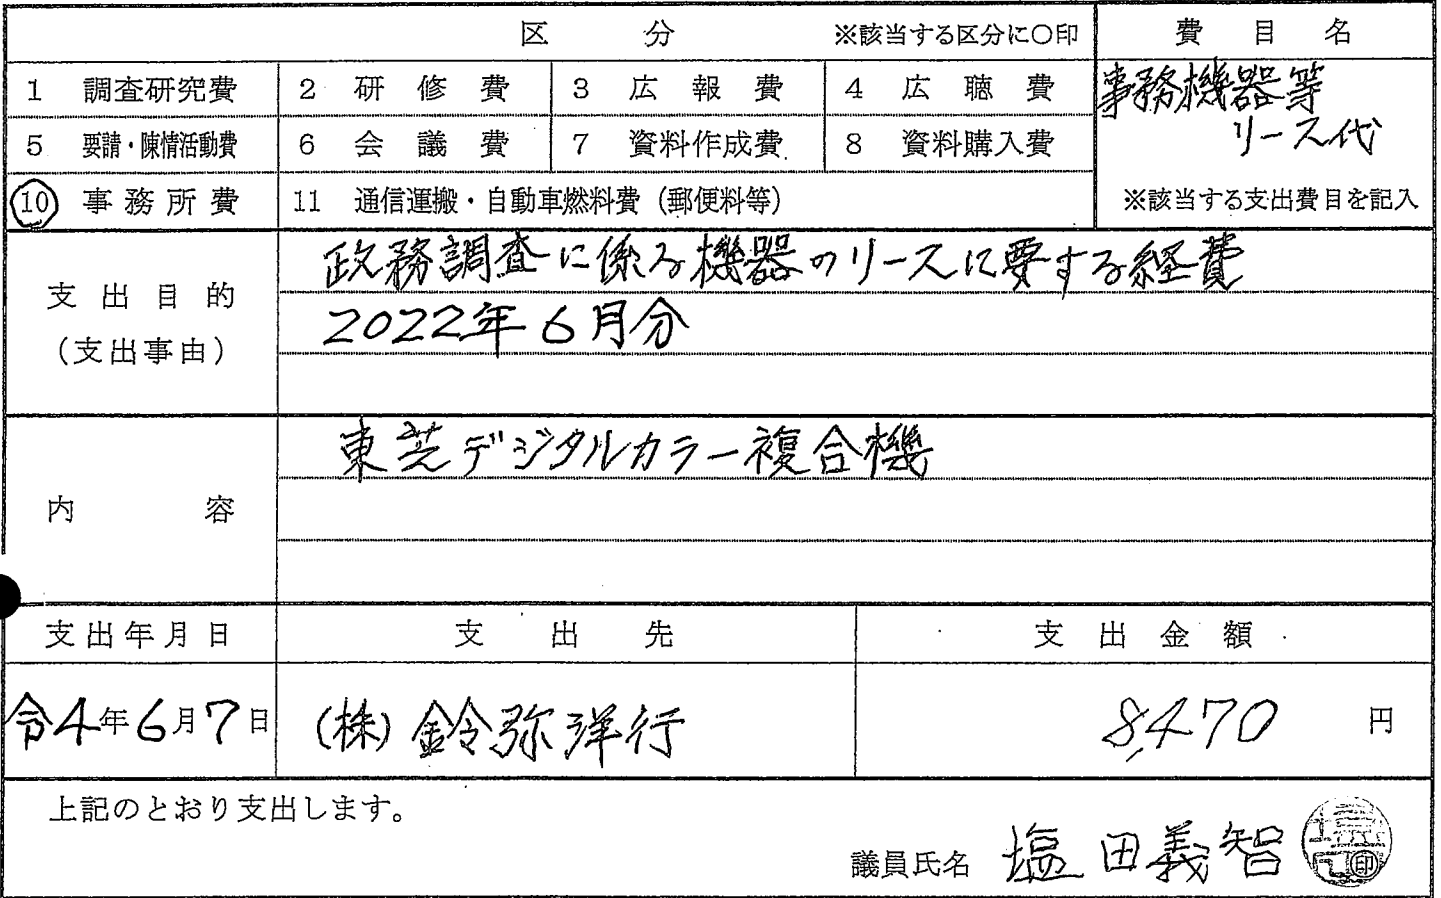 区 分 ※該当する区分に○印 費 目 名
1 調査研究費 2 研 修 費 3 広 報 費 4 広 聴 費 事務機器等
リース代
5 要請・陳情活動費 6 会 議 費 7 資料作成費 8 資料購入費
10 事務所費 11 通信運搬・自動車燃料費（郵便料等） ※該当する支出費目を記入
支出目的
（支出事由）
政務調査に係る機器のリースに要する経費
2022年6月分
内 容
東芝デジタルカラー複合機
支出年月日 支 出 先 支 出 金 額
令4年6月7日 (株)鈴弥洋行 8,470 円
上記のとおり支出します。
議員氏名 塩田義智 印